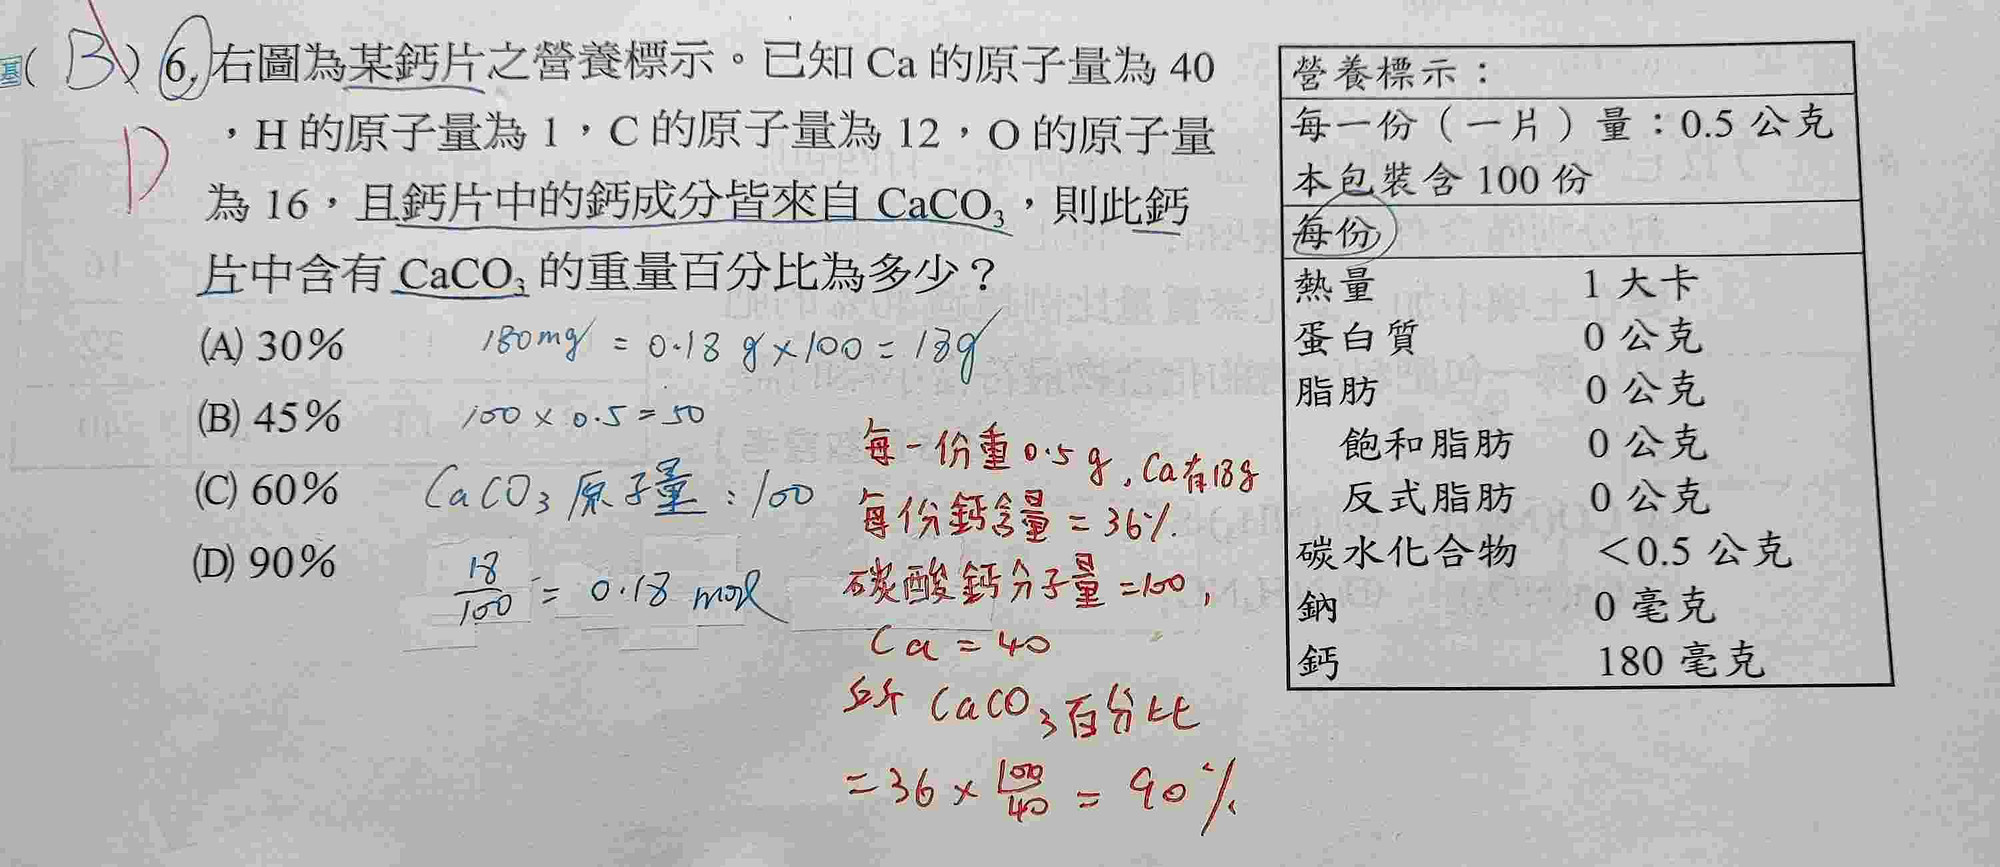 基( B ) 6. 右圖為某鈣片之營養標示。已知 Ca 的原子量為 40
D
，H 的原子量為 1，C 的原子量為 12，O 的原子量
為 16，且鈣片中的鈣成分皆來自 CaCO₃，則此鈣
片中含有 CaCO₃ 的重量百分比為多少？
(A) 30%
(B) 45%
(C) 60%
(D) 90%
180mg = 0.18 g × 100 = 18g
100 × 0.5 = 50
CaCO₃ 原子量：100
18/100 = 0.18 mol
每一份重 0.5 g , Ca有18g
每份鈣含量 = 36%.
碳酸鈣分子量 = 100,
Ca = 40
CaCO₃百分比
= 36 × 100/40 = 90%
營養標示：
每一份（一片）量：0.5 公克
本包裝含 100 份
每份
熱量 1 大卡
蛋白質 0 公克
脂肪 0 公克
飽和脂肪 0 公克
反式脂肪 0 公克
碳水化合物 <0.5 公克
鈉 0 毫克
鈣 180 毫克